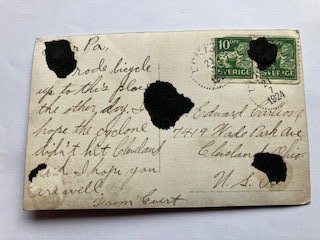 Pa,
rode bicycle
up to this place
the other day. I
hope the cyclone
didn't hit Cleveland
and I hope you
are well.
From Evert
10 10
SVERIGE SVERIGE
1924
Edward
7419 Wade Park Ave
Cleveland Ohio
U. S.